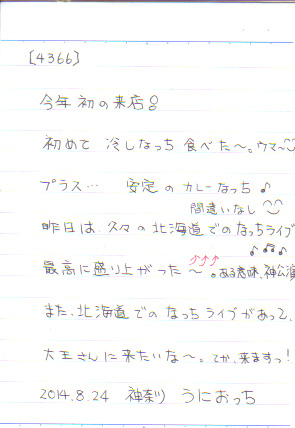 [4366]
今年初の来店
初めて 冷しなっち 食べた〜。ウマ〜
プラス… 安定のカレーなっち♪
間違いなし
昨日は、久々の北海道でのなっちライブ
♪♪♪
最高に盛り上がった〜。ある意味、神公演
また、北海道でのなっちライブがあっ
大王さんに来たいな〜。てか、来ますっ!
2014.8.24 神奈川 うにおっち